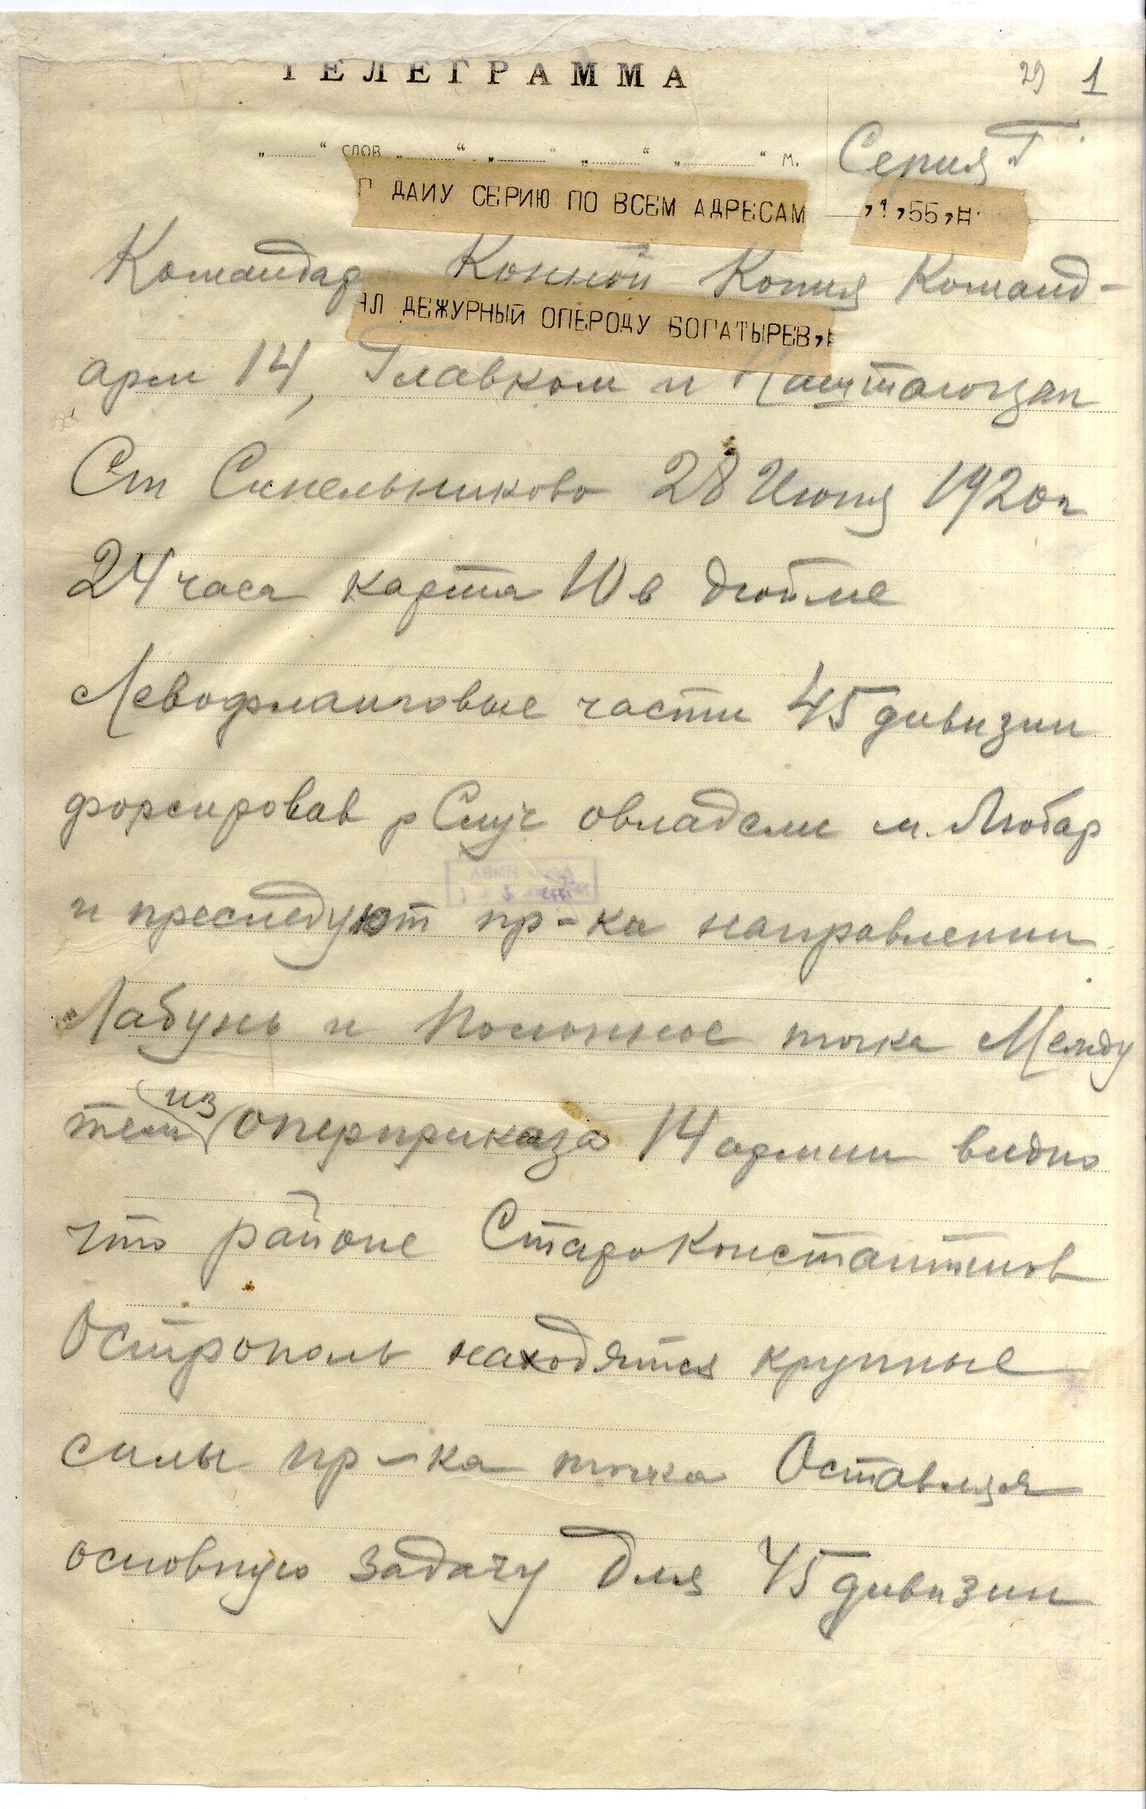 ТЕЛЕГРАММА
29 1
„ “ слов „ “ „ “ „ “ „ “ м.
Серия Г.
Г ДАИУ СЕРИЮ ПО ВСЕМ АДРЕСАМ
,1,55,Н
Командарм Конной Копия Команд-
ЯЛ ДЕЖУРНЫЙ ОПЕРОДУ БОГАТЫРЕВ,
арм 14, Главком и Наштаюгзап
Ст Синельниково 28 Июня 1920г
24 часа карта 10 в дюйме
Левофланговые части 45 дивизии
форсировав р Случ овладели м. Любар
и преследуют пр-ка направлении
Лабунь и Полонное точка Между
тем из оперприказа 14 армии видно
что районе Староконстантинов
Острополь находятся крупные
силы пр-ка точка Оставляя
основную задачу для 45 дивизии